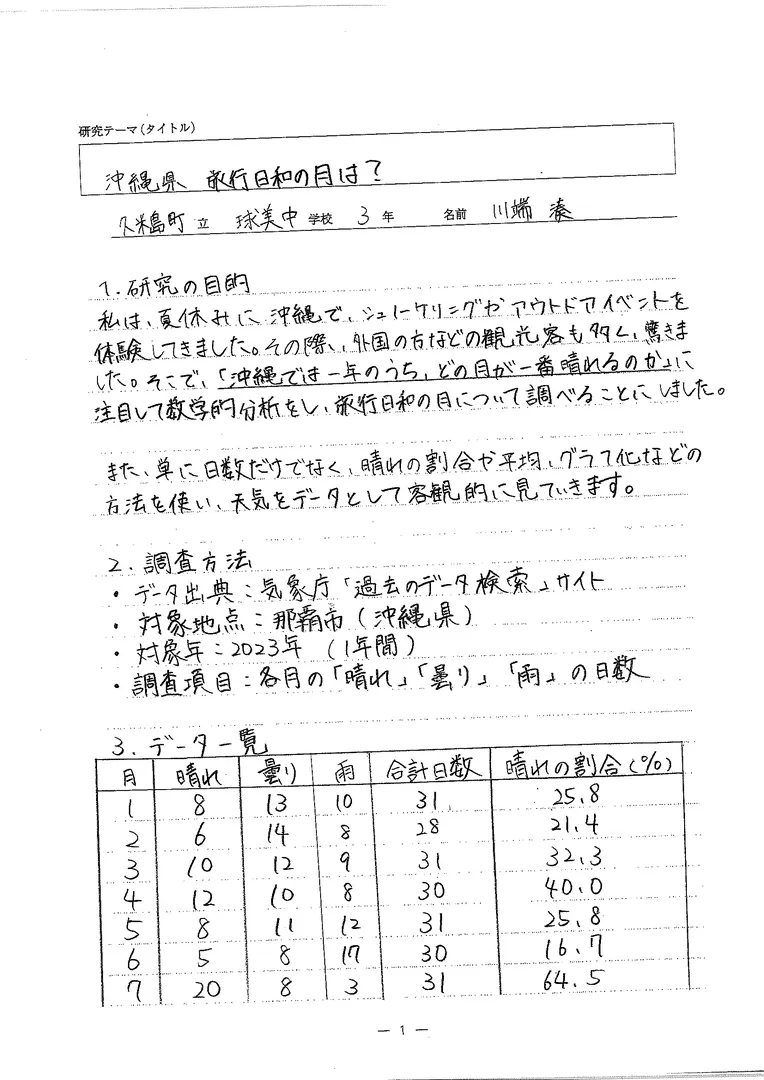 研究テーマ(タイトル)
沖縄県 旅行日和の月は?
久米島町 立 球美中 学校 3 年 名前 川端 湊
1. 研究の目的
私は、夏休みに沖縄で、シュノーケリングやアウトドアイベントを
体験してきました。その際、外国の方などの観光客も多く、驚きま
した。そこで、「沖縄では一年のうち、どの月が一番晴れるのか」に
注目して数学的分析をし、旅行日和の月について調べることにしました。
また、単に日数だけでなく、晴れの割合や平均、グラフ化などの
方法を使い、天気をデータとして客観的に見ていきます。
2. 調査方法
・データ出典：気象庁「過去のデータ検索」サイト
・対象地点：那覇市(沖縄県)
・対象年：2023年 (1年間)
・調査項目：各月の「晴れ」「曇り」「雨」の日数
3. データ一覧
月 晴れ 曇り 雨 合計日数 晴れの割合(%)
1 8 13 10 31 25.8
2 6 14 8 28 21.4
3 10 12 9 31 32.3
4 12 10 8 30 40.0
5 8 11 12 31 25.8
6 5 8 17 30 16.7
7 20 8 3 31 64.5
— 1 —